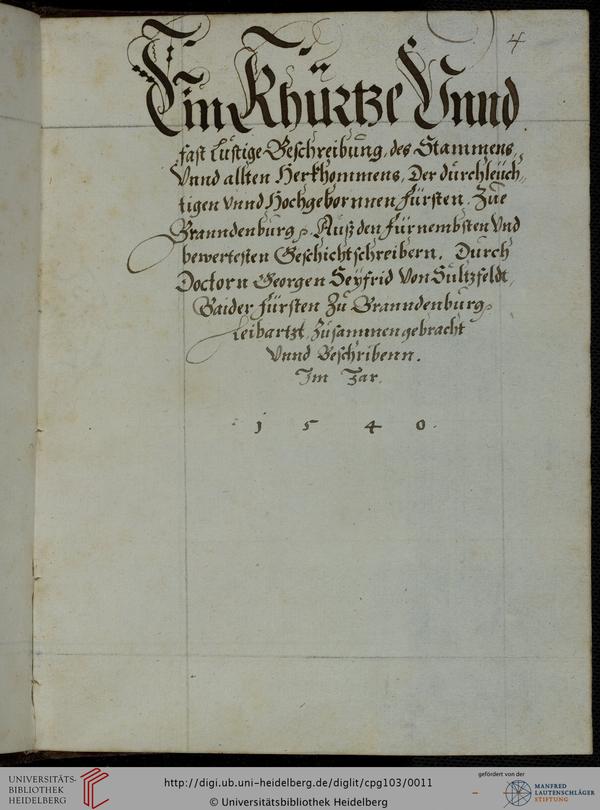 4
Ein Khürtze Vnnd
fast Lustige Beschreibung, des Stammens,
Vnnd allten Herkhommens, Der durchleuch,,
tigen vnnd Hochgebornnen fürsten. Zue
Branndenburg. Auß den fürnembsten Vnd
bewertesten Geschichtschreibern. Durch
Doctorn Georgen Seyfrid Von Sultzfeldt,
Baider fürsten Zu Branndenburg
Leibartzt, Zusammen gebracht
Vnnd Beschribenn.
Im Jar.
1 5 4 0.
UNIVERSITÄTS-
BIBLIOTHEK
HEIDELBERG
http://digi.ub.uni-heidelberg.de/diglit/cpg103/0011
© Universitätsbibliothek Heidelberg
gefördert von der
MANFRED
LAUTENSCHLÄGER
STIFTUNG